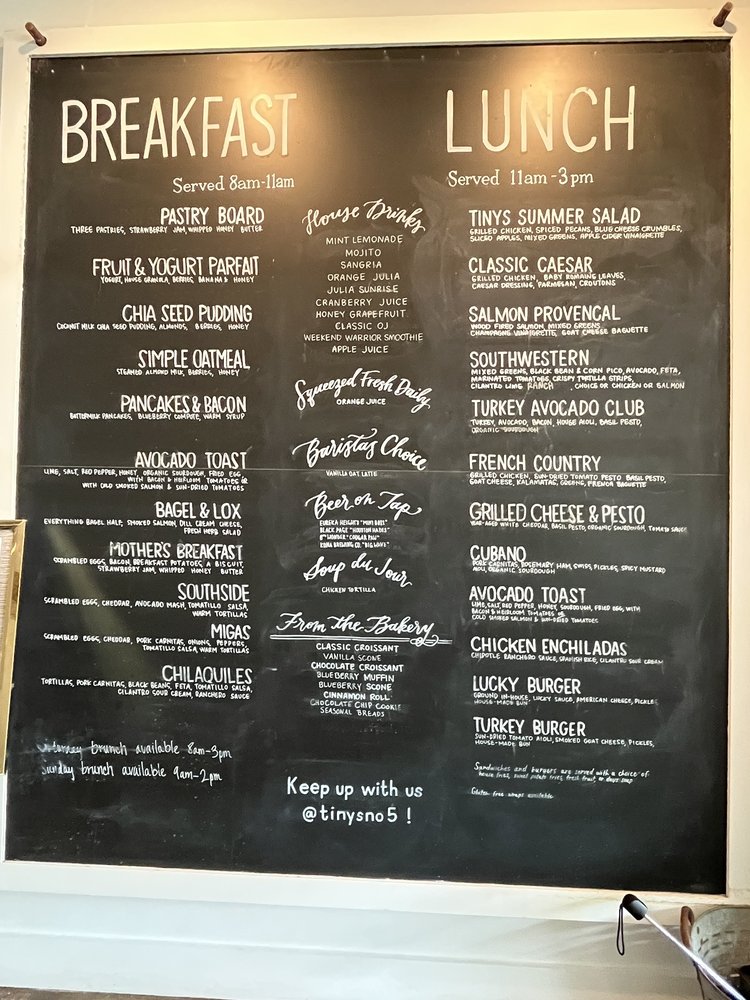 BREAKFAST
Served 8am-11am
PASTRY BOARD
THREE PASTRIES, STRAWBERRY JAM, WHIPPED HONEY BUTTER
FRUIT & YOGURT PARFAIT
YOGURT, HOUSE GRANOLA, BERRIES, BANANA & HONEY
CHIA SEED PUDDING
COCONUT MILK CHIA SEED PUDDING, ALMONDS, BERRIES, HONEY
SIMPLE OATMEAL
STEAMED ALMOND MILK, BERRIES, HONEY
PANCAKES & BACON
BUTTERMILK PANCAKES, BLUEBERRY COMPOTE, WARM SYRUP
AVOCADO TOAST
LIME, SALT, RED PEPPER, HONEY, ORGANIC SOURDOUGH, FRIED EGG,
WITH BACON & HEIRLOOM TOMATOES OR
WITH COLD SMOKED SALMON & SUN-DRIED TOMATOES
BAGEL & LOX
EVERYTHING BAGEL HALF, SMOKED SALMON, DILL CREAM CHEESE,
FRESH HERB SALAD
MOTHER'S BREAKFAST
SCRAMBLED EGGS, BACON, BREAKFAST POTATOES, A BISCUIT,
STRAWBERRY JAM, WHIPPED HONEY BUTTER
SOUTHSIDE
SCRAMBLED EGGS, CHEDDAR, AVOCADO MASH, TOMATILLO SALSA,
WARM TORTILLAS
MIGAS
SCRAMBLED EGGS, CHEDDAR, PORK CARNITAS, ONIONS, PEPPERS,
TOMATILLO SALSA, WARM TORTILLAS
CHILAQUILES
TORTILLAS, PORK CARNITAS, BLACK BEANS, FETA, TOMATILLO SALSA,
CILANTRO SOUR CREAM, RANCHERO SAUCE
brunch available 8am-3pm
Sunday brunch available 9am-2pm
House Drinks
MINT LEMONADE
MOJITO
SANGRIA
ORANGE JULIA
JULIA SUNRISE
CRANBERRY JUICE
HONEY GRAPEFRUIT
CLASSIC OJ
WEEKEND WARRIOR SMOOTHIE
APPLE JUICE
Squeezed Fresh Daily
ORANGE JUICE
Baristas Choice
VANILLA OAT LATTE
Beer on Tap
EUREKA HEIGHTS "MINI BOSS"
BLACK PAGE "HOUSTON HAZE"
8TH WONDER
BREWING CO.
Soup du Jour
CHICKEN TORTILLA
From the Bakery
CLASSIC CROISSANT
VANILLA SCONE
CHOCOLATE CROISSANT
BLUEBERRY MUFFIN
BLUEBERRY SCONE
CINNAMON ROLL
CHOCOLATE CHIP COOKIE
SEASONAL BREADS
Keep up with us
@tinysno5 !
LUNCH
Served 11am-3pm
TINYS SUMMER SALAD
GRILLED CHICKEN, SPICED PECANS, BLUE CHEESE CRUMBLES,
SLICED APPLES, MIXED GREENS, APPLE CIDER VINAIGRETTE
CLASSIC CAESAR
GRILLED CHICKEN, BABY ROMAINE LEAVES,
CAESAR DRESSING, PARMESAN, CROUTONS
SALMON PROVENCAL
WOOD FIRED SALMON, MIXED GREENS
CHAMPAGNE VINAIGRETTE, GOAT CHEESE BAGUETTE
SOUTHWESTERN
MIXED GREENS, BLACK BEAN & CORN PICO, AVOCADO, FETA,
MARINATED TOMATOES, CRISPY TORTILLA STRIPS,
CILANTRO LIME RANCH , CHOICE OR CHICKEN OR SALMON
TURKEY AVOCADO CLUB
TURKEY, AVOCADO, BACON, HOUSE AIOLI, BASIL PESTO,
ORGANIC SOURDOUGH
FRENCH COUNTRY
GRILLED CHICKEN, SUN-DRIED TOMATO PESTO BASIL PESTO,
GOAT CHEESE, KALAMATAS, GREENS, FRENCH BAGUETTE
GRILLED CHEESE & PESTO
YEAR-AGED WHITE CHEDDAR, BASIL PESTO, ORGANIC SOURDOUGH, TOMATO SAUCE
CUBANO
PORK CARNITAS, ROSEMARY HAM, SWISS, PICKLES, SPICY MUSTARD
AIOLI, ORGANIC SOURDOUGH
AVOCADO TOAST
LIME, SALT, RED PEPPER, HONEY, SOURDOUGH, FRIED EGG, WITH
BACON & HEIRLOOM TOMATOES OR
COLD SMOKED SALMON & SUN-DRIED TOMATOES
CHICKEN ENCHILADAS
CHIPOTLE RANCHERO SAUCE, SPANISH RICE, CILANTRO SOUR CREAM
LUCKY BURGER
GROUND IN-HOUSE, LUCKY SAUCE, AMERICAN CHEESE, PICKLE,
HOUSE-MADE BUN
TURKEY BURGER
SUN-DRIED TOMATO AIOLI, SMOKED GOAT CHEESE, PICKLES,
HOUSE-MADE BUN
Sandwiches and burgers are served with a choice of
house fries, sweet potato fries, fresh fruit, or days soup
Gluten free wraps available